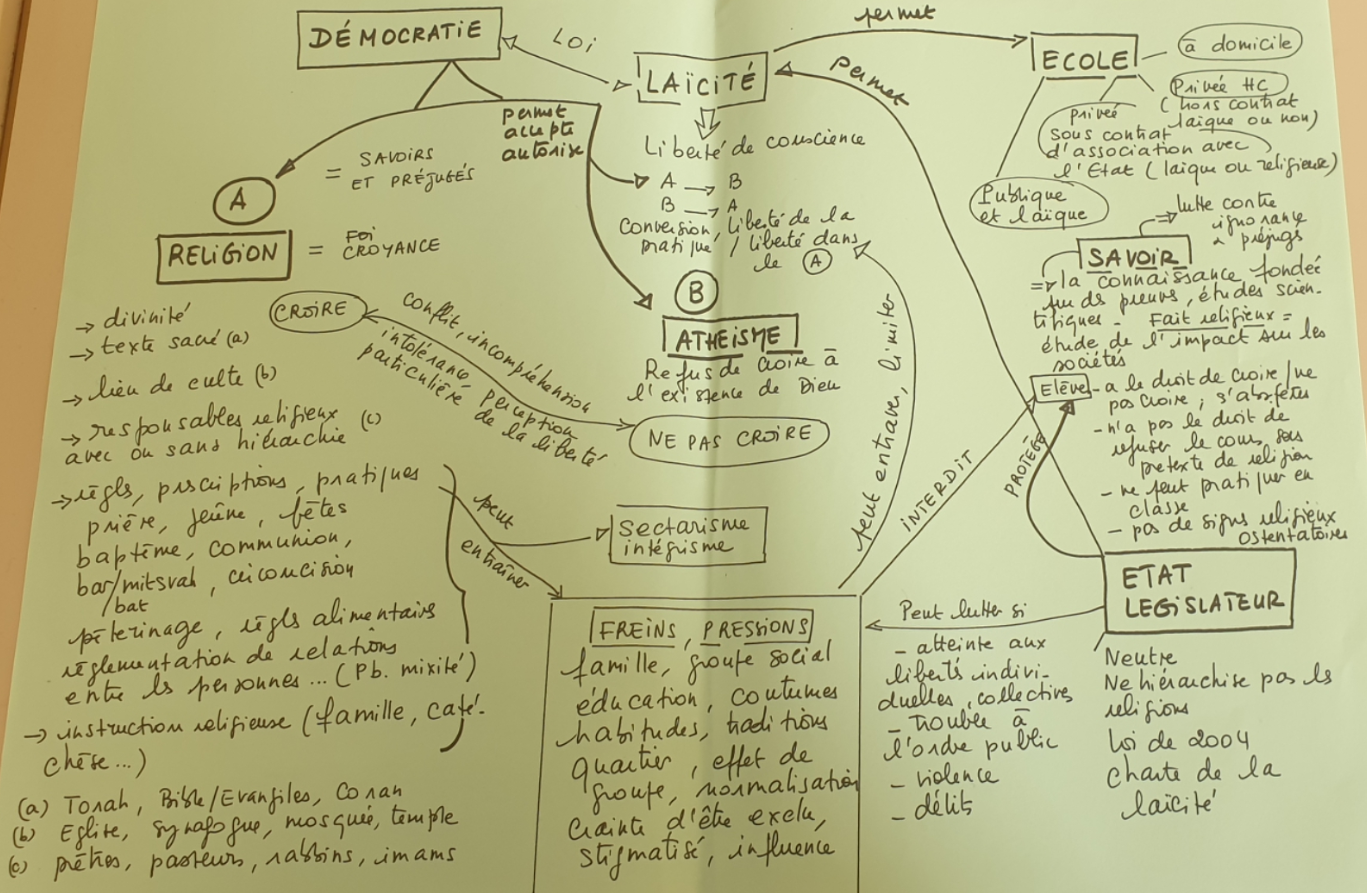 DÉMOCRATIE
LOI
LAÏCITÉ
permet
ECOLE
à domicile
Privée HC
(hors contrat
laïque ou non)
privée
sous contrat
d'association avec
l'Etat (laïque ou religieuse)
Publique
et laïque
permet
permet
accepte
autorise
Liberté de conscience
A → B
B → A
Conversion, liberté de la
pratique / liberté dans
le A
= SAVOIRS
ET PRÉJUGÉS
A
RELIGION
= FOI
CROYANCE
→ divinité
→ texte sacré (a)
→ lieu de culte (b)
→ responsables religieux
avec ou sans hiérarchie (c)
→ règls, prescriptions, pratiques
prière, jeûne, fêtes
baptême, communion,
bar/mitsvah, circoncision
/bat
pèlerinage, règls alimentairs
règlementation de relations
entre ls personnes ... (Pb. mixité)
→ instruction religieuse (famille, caté-
chèse ...)
(a) Torah, Bible/Evangiles, Coran
(b) Eglise, synagogue, mosquée, temple
(c) prêtres, pasteurs, rabbins, imams
CROIRE
conflit, incompréhension
intolérance, perception
particulière de la liberté
NE PAS CROIRE
B
ATHEISME
Refus de croire à
l'existence de Dieu
peut
entraîner
Sectarisme
intégrisme
FREINS, PRESSIONS
famille, groupe social
éducation, coutumes
habitudes, traditions
quartier, effet de
groupe, normalisation
crainte d'être exclu,
stigmatisé, influence
peut entraver, limiter
INTERDIT
PROTÈGE
SAVOIR
⇒ lutte contre
ignorance
préjugs
⇒ la connaissance fondée
sur ds preuvs, études scien-
tifiques - Fait religieux =
étude de l'impact sur les
sociétés
Elève
- a le droit de croire/ne
pas croire ; s'absenter
- n'a pas le droit de
refuser le cours sous
prétexte de religion
- ne peut pratiquer en
classe
- pas de signs religieux
ostentatoires
ETAT
LEGISLATEUR
Neutre
Ne hiérarchise pas ls
religions
Loi de 2004
charte de la
laïcité
Peut lutter si
- atteinte aux
libertés indivi-
duelles, collectives
- trouble à
l'ordre public
- violence
- délits